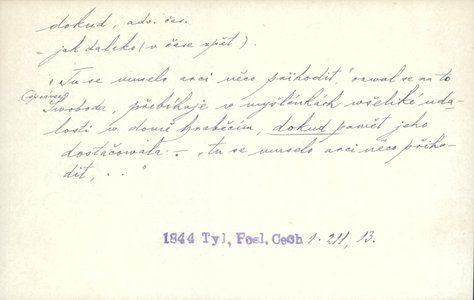 dokud, adv. čas.
- jak daleko (v čase zpět).
„Tu se muselo arci něco přihodit," ozval se na to
(správce)
Svoboda, přebíhaje v myšlénkách všeliké udá-
losti w domě hraběcím, dokud paměť jeho
dostačovala. - „tu se muselo arci něco přiho-
dit, . . "
1844 Tyl, Posl. Cech 1. 211, 13.